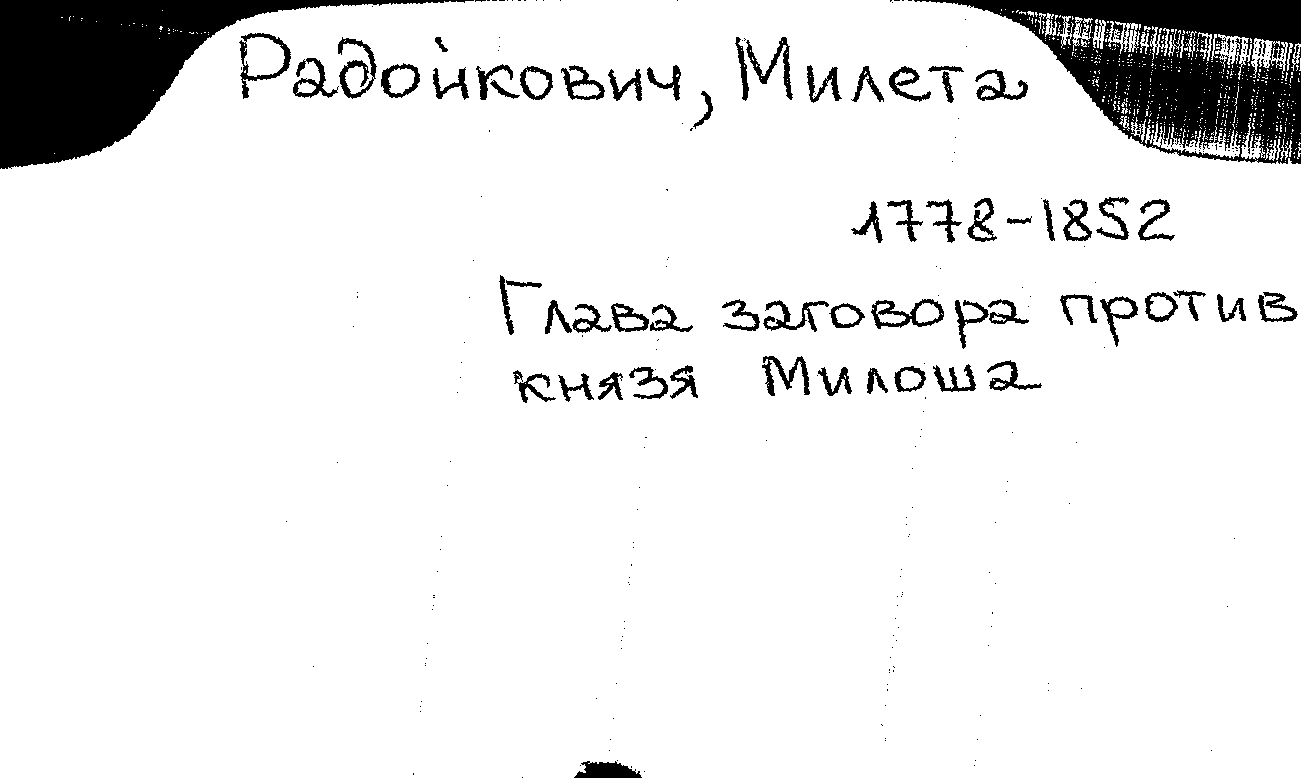 Радойкович, Милета
1778-1852
Глава заговора против
князя Милоша